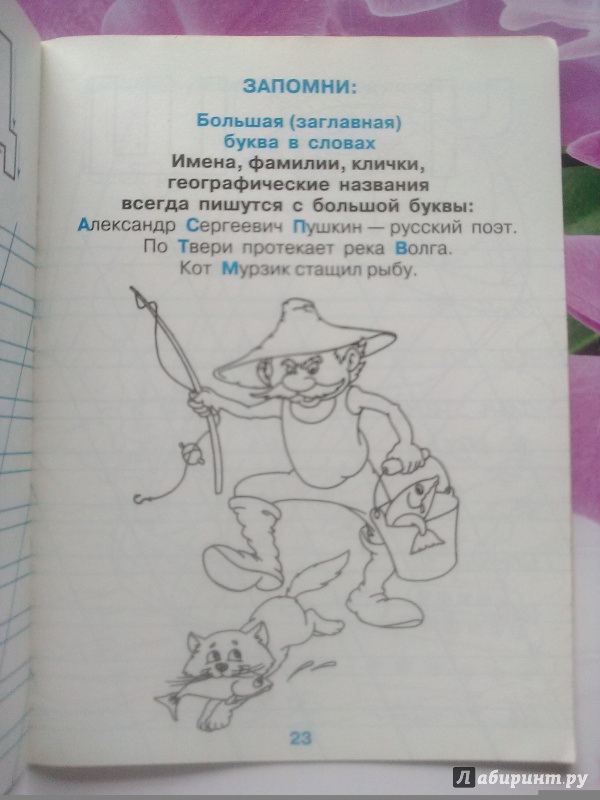 ЗАПОМНИ:
Большая (заглавная)
буква в словах
Имена, фамилии, клички,
географические названия
всегда пишутся с большой буквы:
Александр Сергеевич Пушкин — русский поэт.
По Твери протекает река Волга.
Кот Мурзик стащил рыбу.
23
Лабиринт.ру